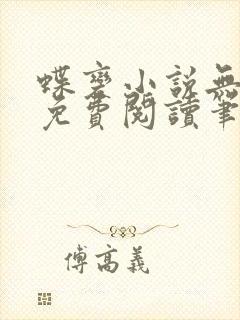 蝶變小說無
免費閱讀筆
傅高義